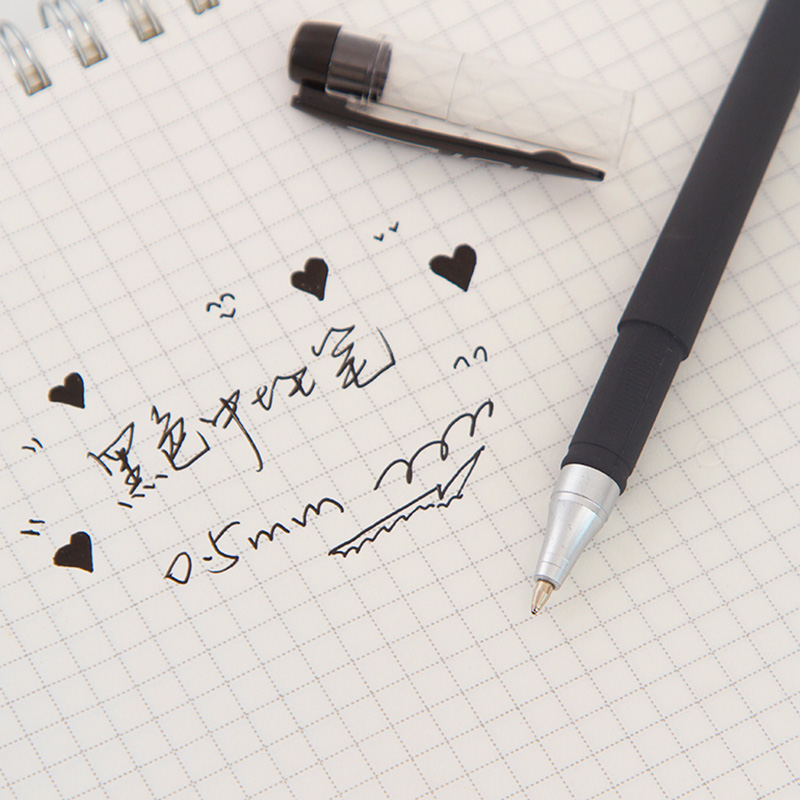 黑色中性笔
0.5mm